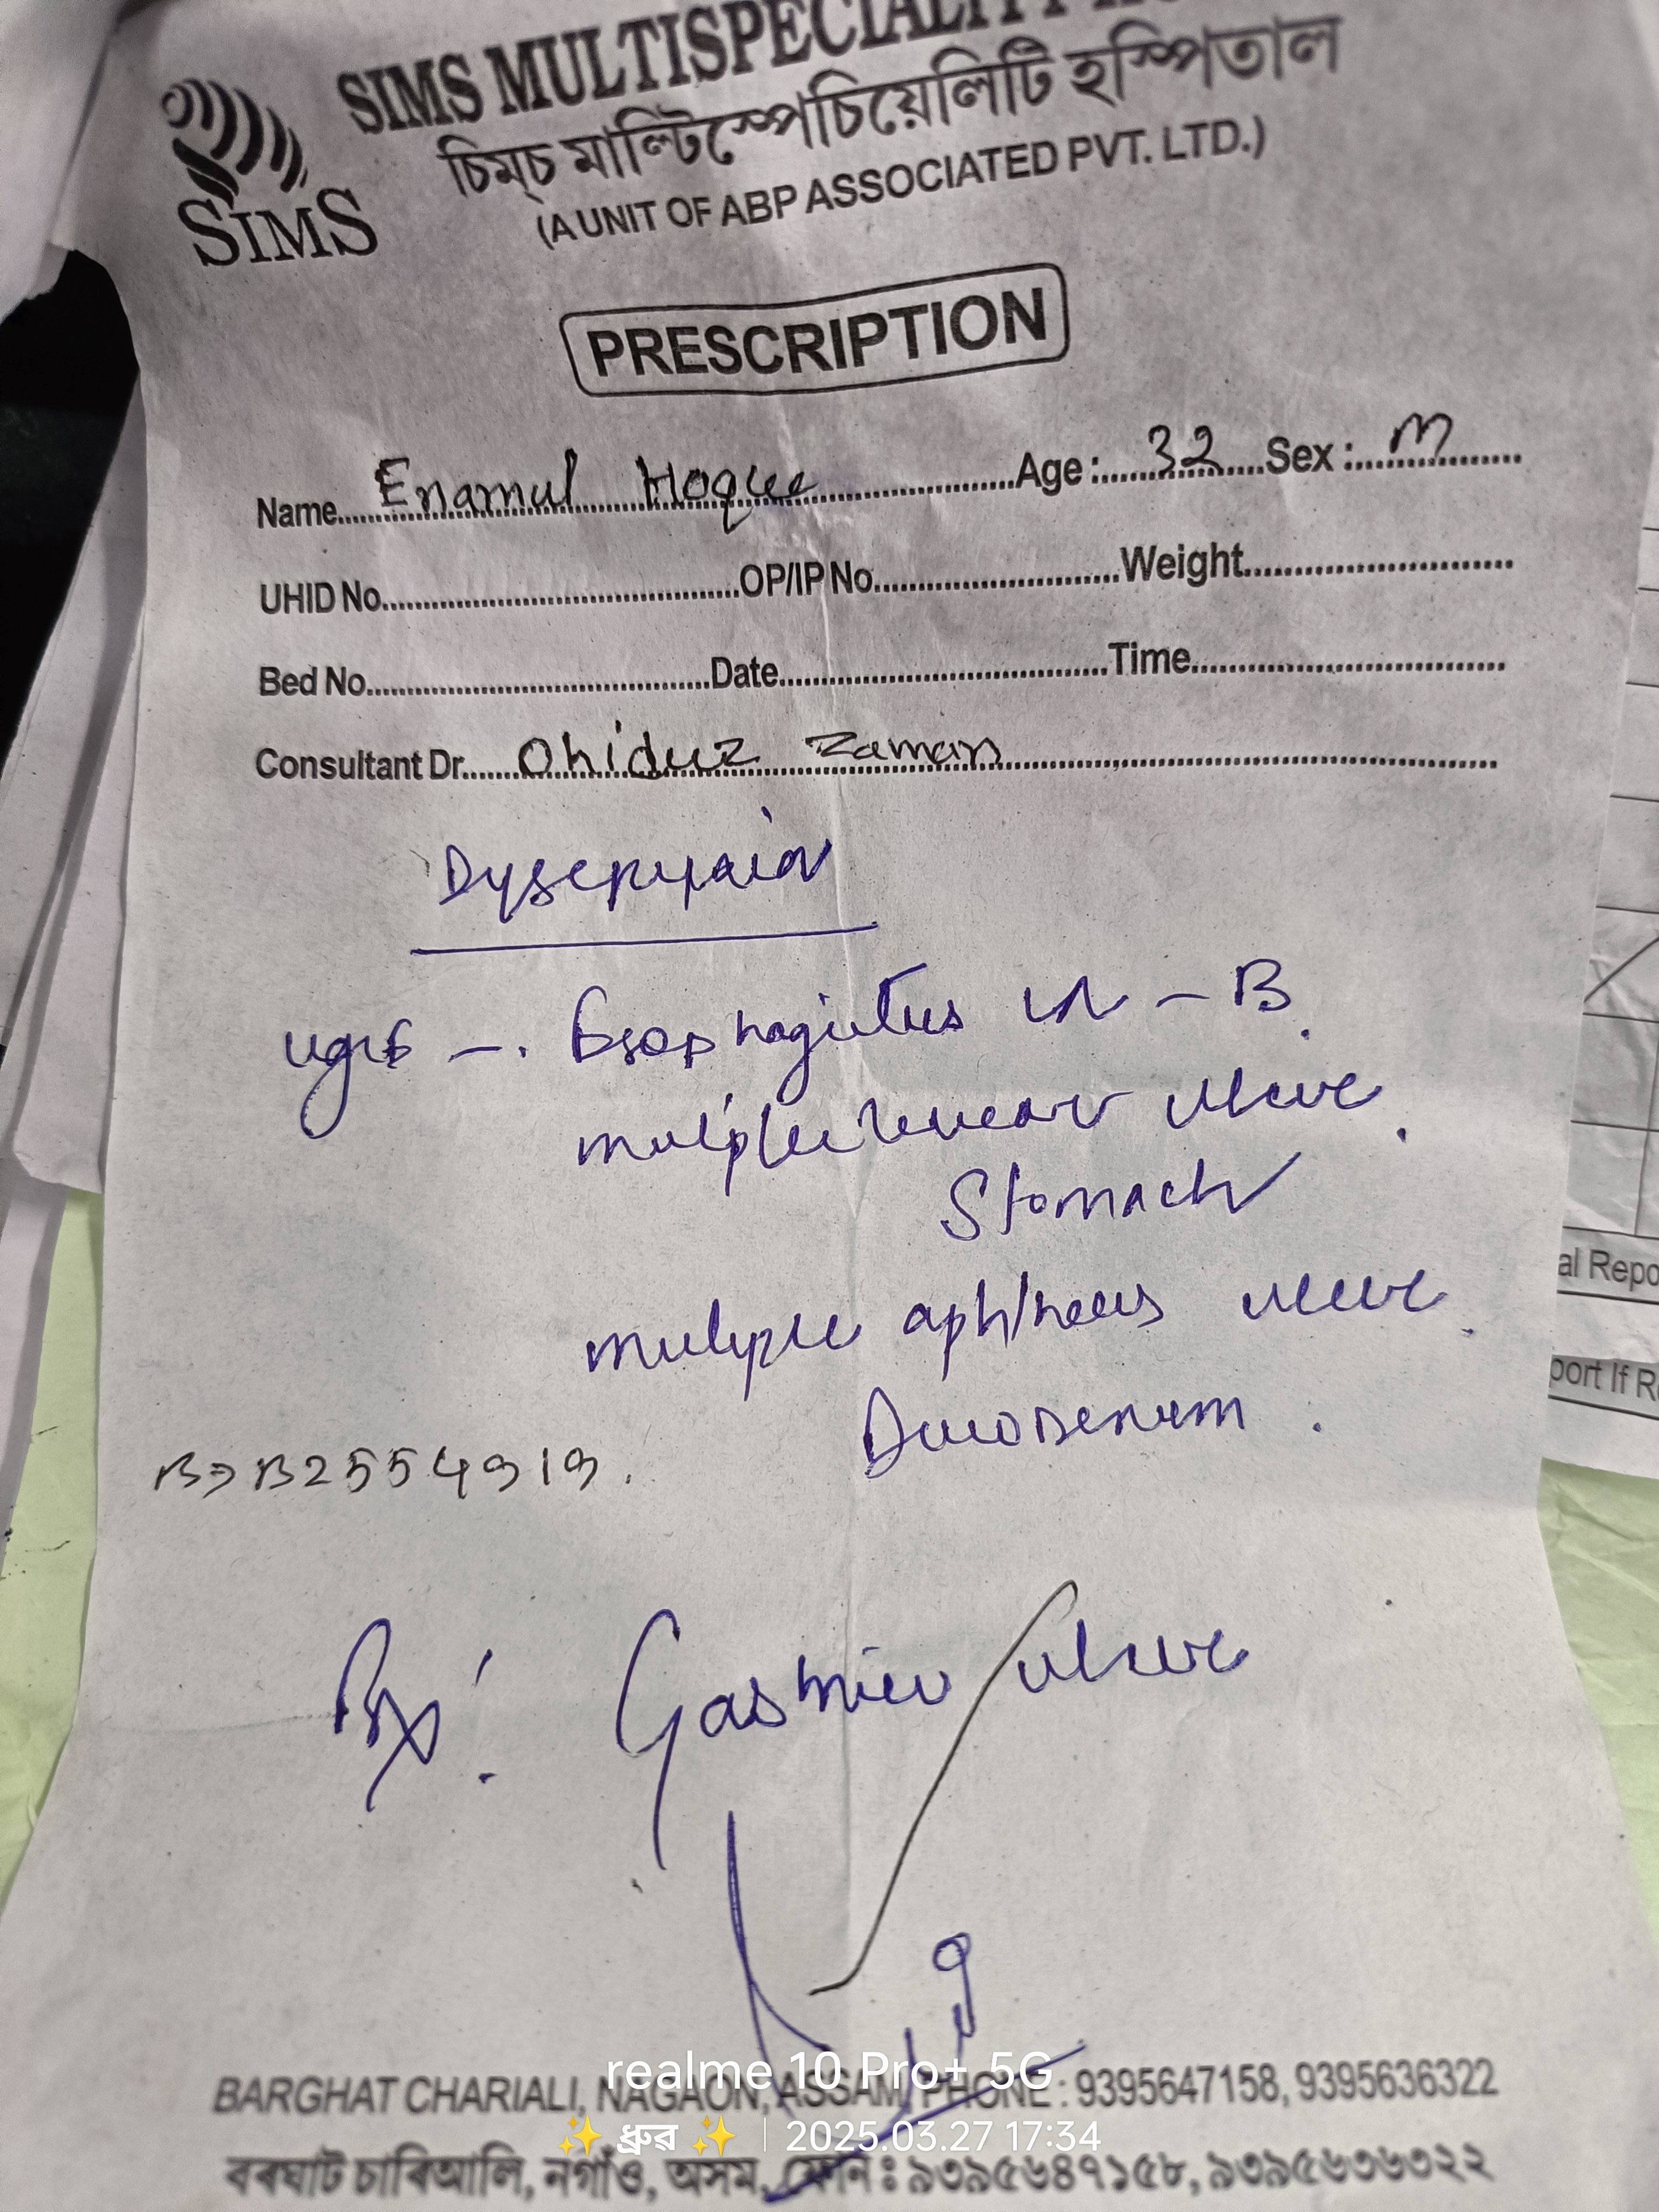 SIMS MULTISPECIALITY
চিম্‌চ মাল্টিস্পেচিয়েলিটি হস্পিতাল
(A UNIT OF ABP ASSOCIATED PVT. LTD.)
SIMS
PRESCRIPTION
Name Enamul Hoque Age : 32 Sex : M
UHID No. OP/IP No. Weight
Bed No. Date Time
Consultant Dr. Ohiduz Zaman
Esophagitis - B.
multiple linear ulcer.
Stomach
multiple aphthous ulcer.
Duodenum.
B2554919.
Gastric ulcer
BARGHAT CHARIALI, NAGAON, ASSAM, PHONE : 9395647158, 9395636322
বৰঘাট চাৰিআলি, নগাঁও, অসম, ফোন : ৯৩৯৫৬৪৭১৫৮, ৯৩৯৫৬৩৬৩২২
realme 10 Pro+ 5G
✨ ধ্ৰুৱ ✨ | 2025.03.27 17:34
al Repo
port If R